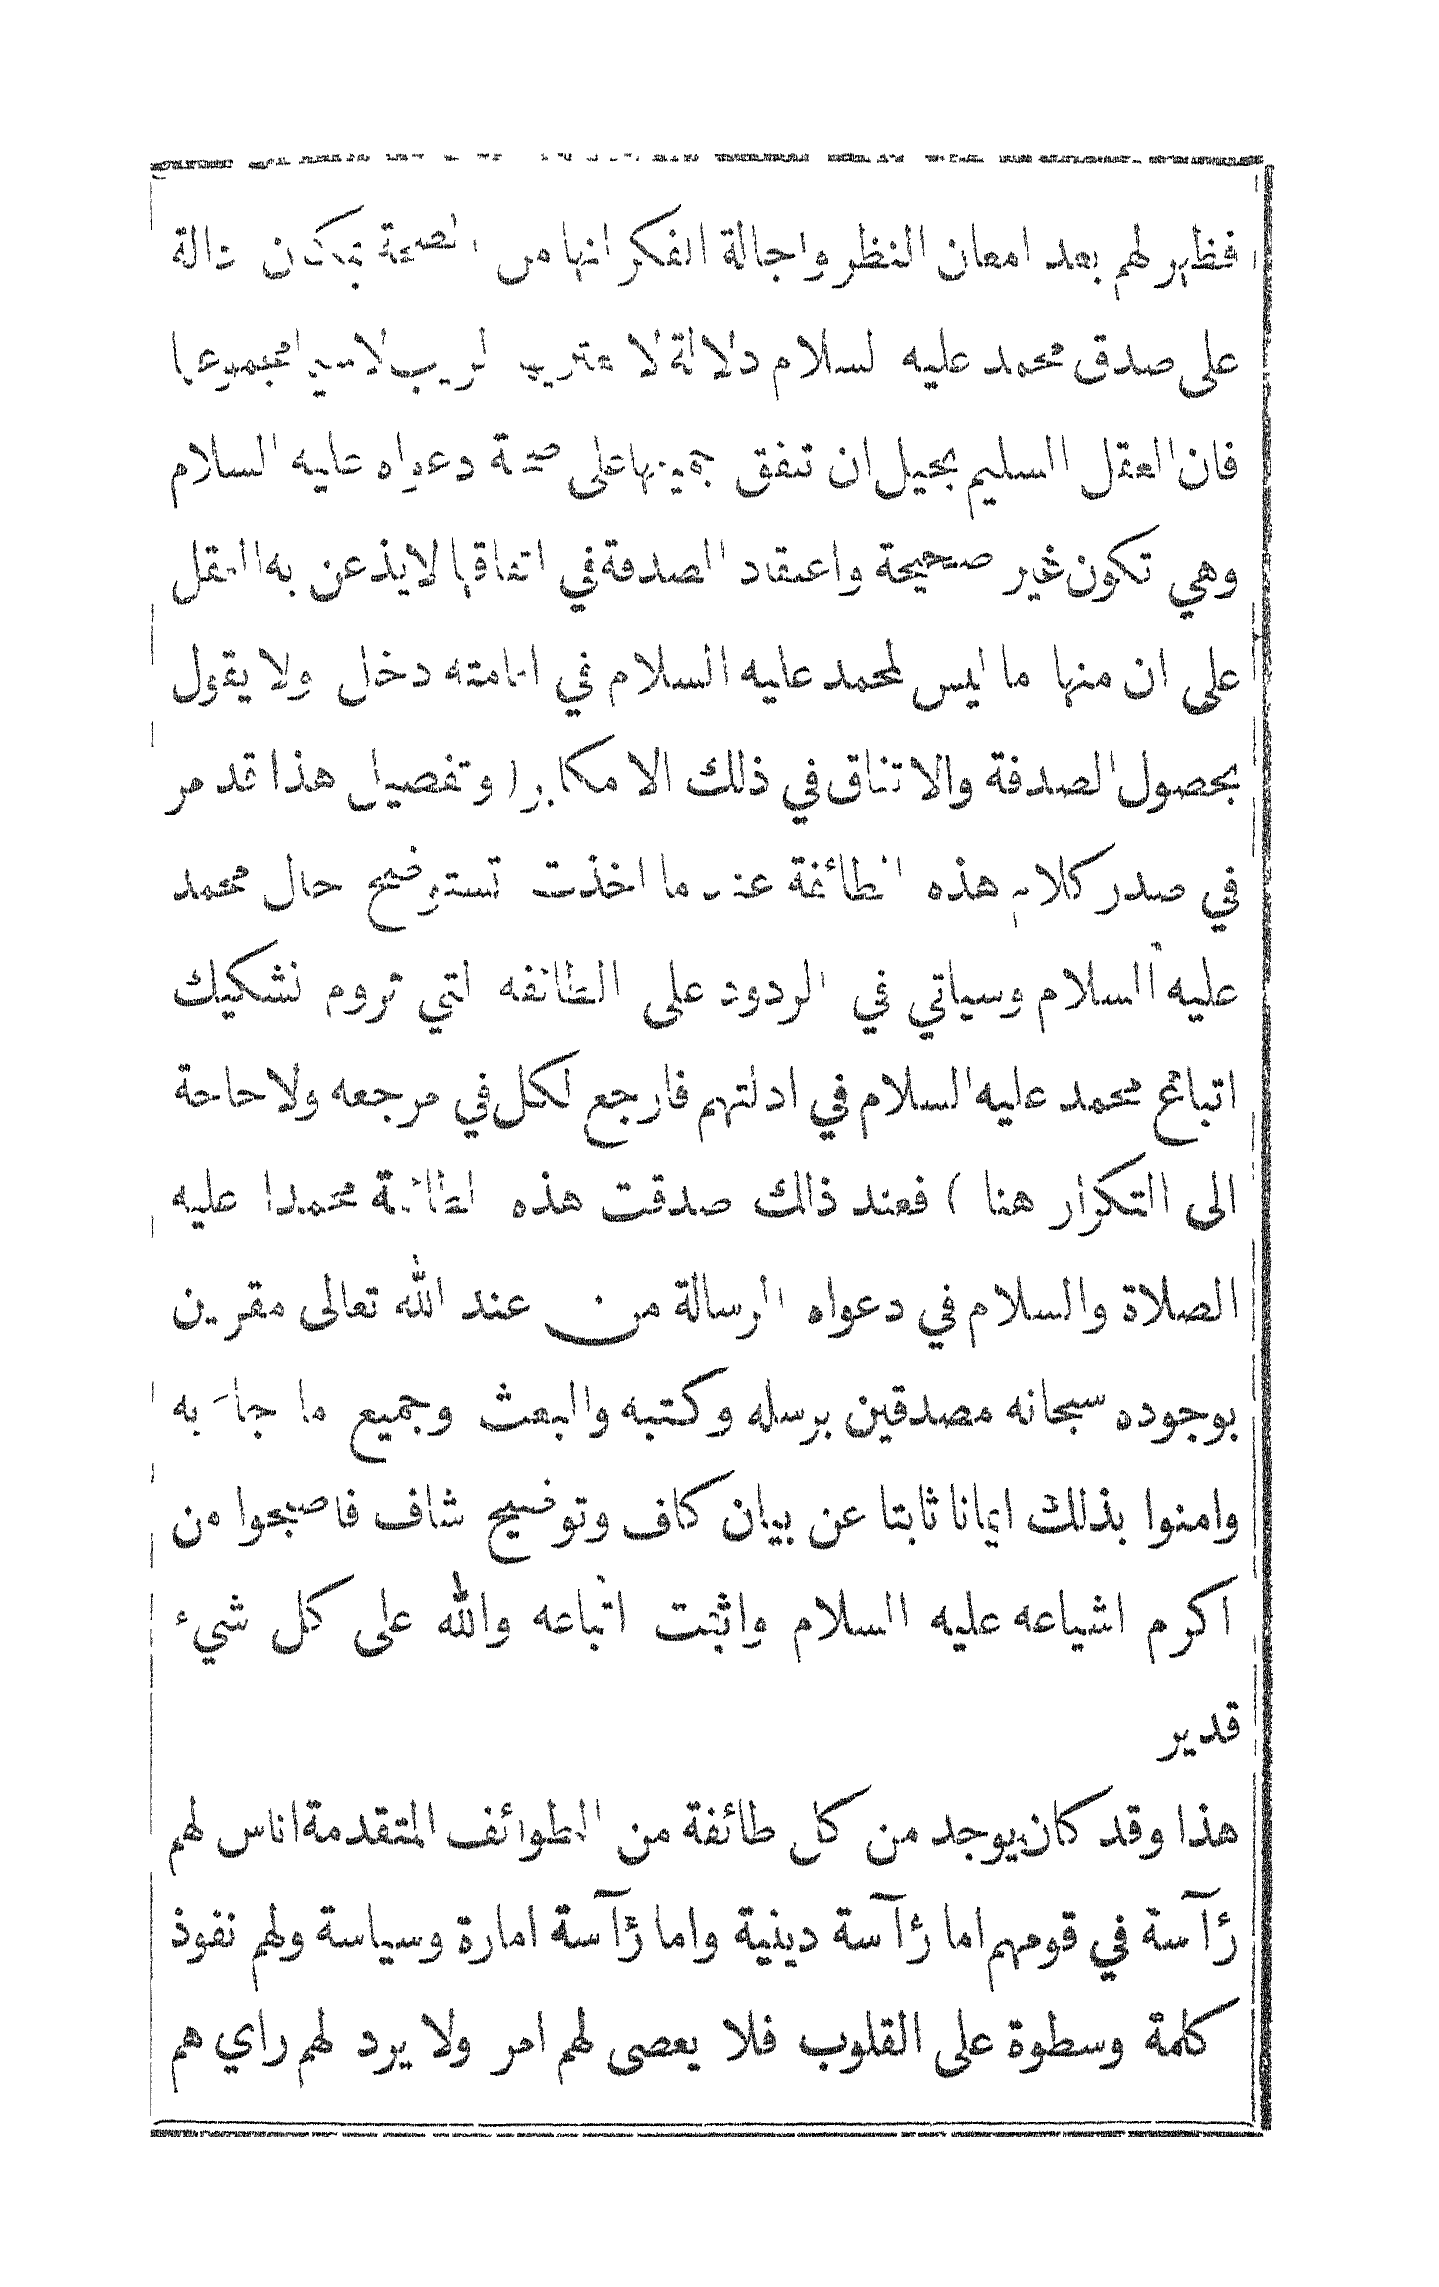 فظهر لهم بعد امعان النظر واجالة الفكر انها من الصحة بمكان دالة
على صدق محمد عليه السلام دلالة لا الريب لا سيما مجموعها
فان العقل السليم يحيل ان تتفق جميعها على صحة دعواه عليه السلام
وهي تكون غير صحيحة واعتقاد الصدفة في اتفاقها لا يذعن به العقل
على ان منها ما ليس لمحمد عليه السلام في اقامته دخل ولا يقول
بحصول الصدفة والاتفاق في ذلك الا مكابر ( وتفصيل هذا قد مر
في صدر كلام هذه الطائفة عند ما اخذت تستوضح حال محمد
عليه السلام وسياتي في الردود على الطائفه التي تروم تشكيك
اتباع محمد عليه السلام في ادلتهم فارجع لكل في مرجعه ولا حاجة
الى التكرار هنا ) فعند ذالك صدقت هذه الطائفة محمدا عليه
الصلاة والسلام في دعواه الرسالة من عند الله تعالى مقرين
بوجوده سبحانه مصدقين برسله وكتبه والبعث وجميع ما جاء به
وامنوا بذلك ايمانا ثابتا عن بيان كاف وتوضيح شاف فاصبحوا من
اكرم اشياعه عليه السلام واثبت اتباعه والله على كل شيء
قدير
هذا وقد كان يوجد من كل طائفة من الطوائف المتقدمة اناس لهم
رآسة في قومهم اما رآسة دينية واما رآسة امارة وسياسة ولهم نفوذ
كلمة وسطوة على القلوب فلا يعصى لهم امر ولا يرد لهم راي هم